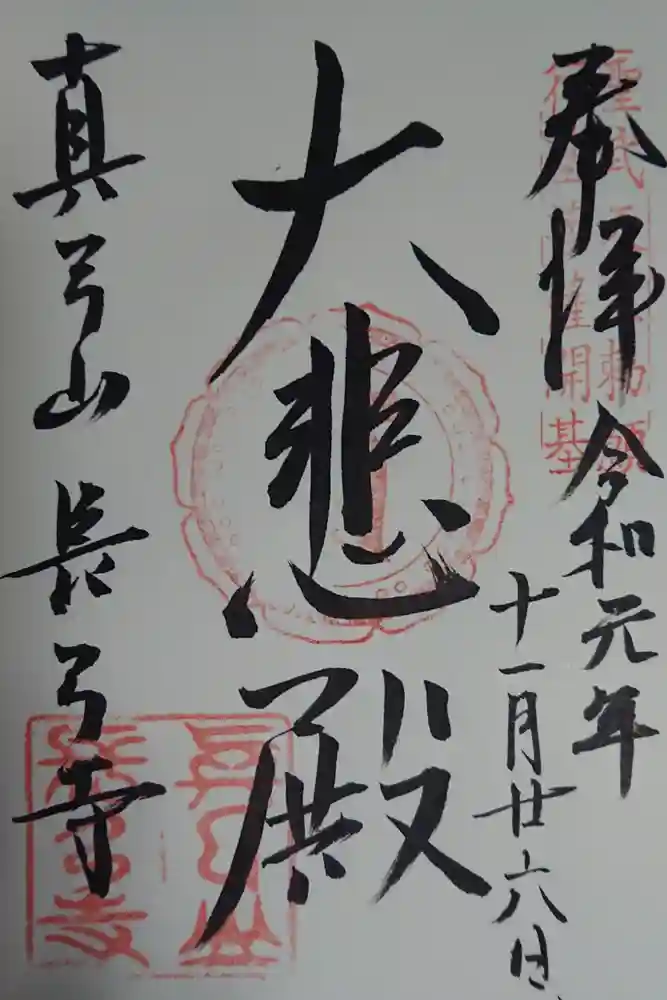 奉拝 令和元年
十一月廿六日
大悲殿
真弓山 長弓寺
開基